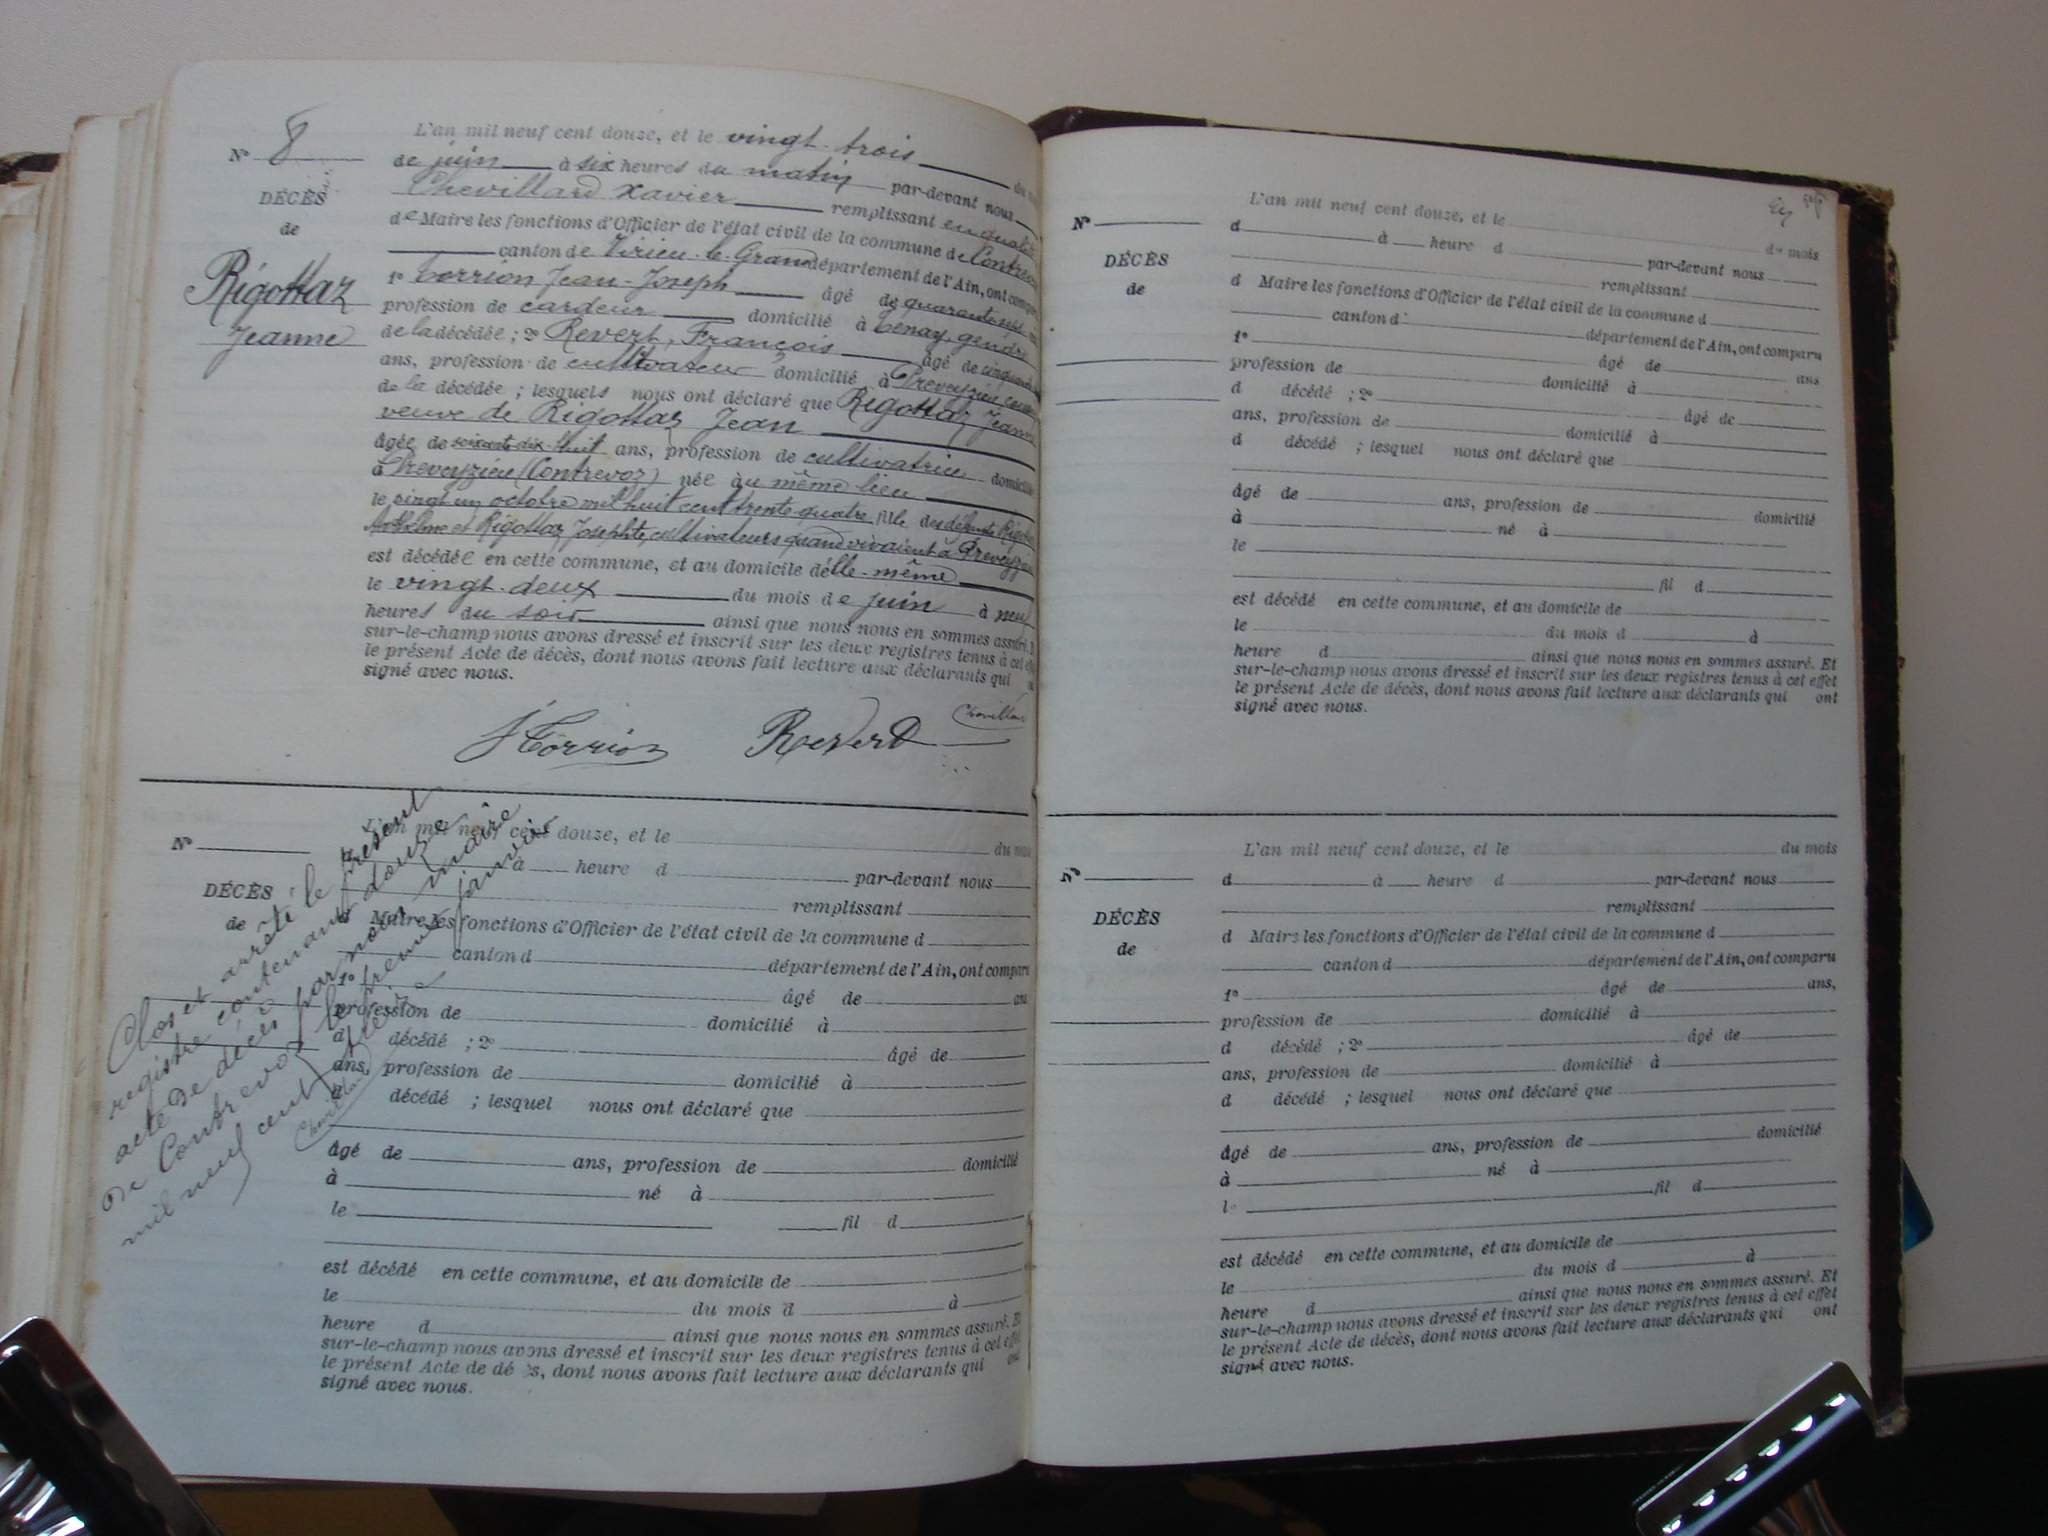 N° 8
DÉCÈS
de
Rigottaz
Jeanne
L'an mil neuf cent douze, et le vingt-trois du
de juin à six heures du matin par-devant nous
Chevillard Xavier remplissant en qualité
de Maire les fonctions d'Officier de l'état civil de la commune de Contrevoz
canton de Virieu-le-Grand département de l'Ain, ont comparu
1° Corrion Jean-Joseph âgé de quarante
profession de cardeur domicilié à Tenay, gendre
de la décédée ; 2° Revert, François âgé de cinquante
ans, profession de cultivateur domicilié à Preveyzieu
de la décédée ; lesquels nous ont déclaré que Rigottaz Jeanne
veuve de Rigottaz Jean
âgée de soixante-dix-huit ans, profession de cultivatrice domicilié
à Preveyzieu (Contrevoz) née au même lieu
le vingt un octobre mil huit cent trente-quatre fille des défunts Rigottaz
Anthelme et Rigottaz Josephte, cultivateurs quand vivaient à Preveyzieu
est décédée en cette commune, et au domicile d'elle-même
le vingt-deux du mois de juin à neuf
heures du soir ainsi que nous nous en sommes assuré. Et
sur-le-champ nous avons dressé et inscrit sur les deux registres tenus à cet effet
le présent Acte de décès, dont nous avons fait lecture aux déclarants qui ont
signé avec nous.
Chevillard
J Corrion Revert
N°
DÉCÈS
de
L'an mil neuf cent douze, et le du mois
à heure d par-devant nous
remplissant
d Maire les fonctions d'Officier de l'état civil de la commune d
canton d département de l'Ain, ont comparu
1° âgé de ans
profession de domicilié à
d décédé ; 2° âgé de
ans, profession de domicilié à
d décédé ; lesquel nous ont déclaré que
âgé de ans, profession de domicilié
à né à
le fil d
est décédé en cette commune, et au domicile de
le du mois d à
heure d ainsi que nous nous en sommes assuré. Et
sur-le-champ nous avons dressé et inscrit sur les deux registres tenus à cet effet
le présent Acte de décès, dont nous avons fait lecture aux déclarants qui ont
signé avec nous.
Clos et arrêté le présent
registre contenant douze
acte de décès par nous maire
de Contrevoz le premier janvier
mil neuf cent treize
Chevillard
N°
DÉCÈS
de
L'an mil neuf cent douze, et le du mois
d à heure d par-devant nous
remplissant
d Maire les fonctions d'Officier de l'état civil de la commune d
canton d département de l'Ain, ont comparu
1° âgé de ans
profession de domicilié à
d décédé ; 2° âgé de
ans, profession de domicilié à
d décédé ; lesquel nous ont déclaré que
âgé de ans, profession de domicilié
à né à
le
fil d
est décédé en cette commune, et au domicile de
le du mois d à
heure d ainsi que nous nous en sommes assuré. Et
sur-le-champ nous avons dressé et inscrit sur les deux registres tenus à cet effet
le présent Acte de décès, dont nous avons fait lecture aux déclarants qui ont
signé avec nous.
N°
DÉCÈS
de
L'an mil neuf cent douze, et le du mois
d à heure d par-devant nous
remplissant
d Maire les fonctions d'Officier de l'état civil de la commune d
canton d département de l'Ain, ont comparu
1° âgé de ans,
profession de domicilié à
d décédé ; 2° âgé de
ans, profession de domicilié à
d décédé ; lesquel nous ont déclaré que
âgé de ans, profession de domicilié
à né à
le fil d
est décédé en cette commune, et au domicile de
le du mois d à
heure d ainsi que nous nous en sommes assuré. Et
sur-le-champ nous avons dressé et inscrit sur les deux registres tenus à cet effet
le présent Acte de décès, dont nous avons fait lecture aux déclarants qui ont
signé avec nous.